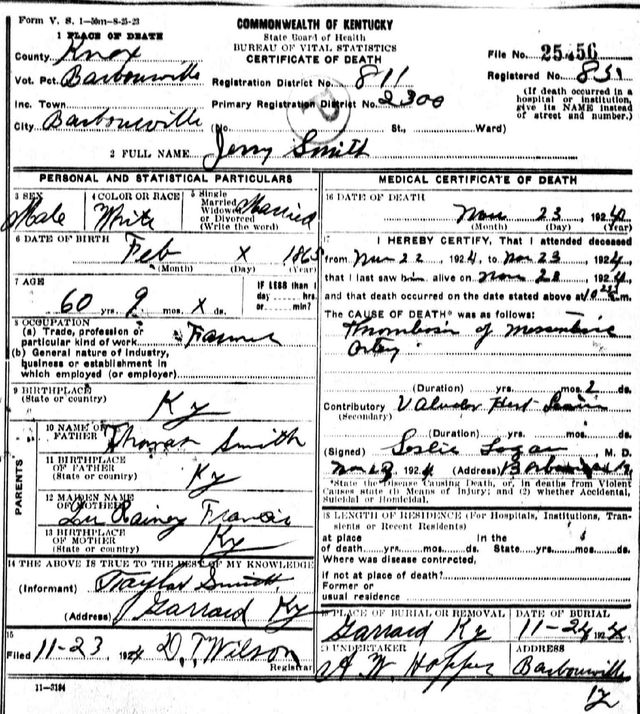 Form V. S. 1—50m—8-25-23
COMMONWEALTH OF KENTUCKY
State Board of Health
BUREAU OF VITAL STATISTICS
CERTIFICATE OF DEATH
1 PLACE OF DEATH
County Knox
File No. 25456
Vot. Pct. Barbourville
Registration District No. 811
Registered No.
Inc. Town
Primary Registration District No. 2300
(If death occurred in a hospital or institution, give its NAME instead of street and number.)
City Barbourville (No. St., Ward)
2 FULL NAME Jerry Smith
PERSONAL AND STATISTICAL PARTICULARS
3 SEX Male
4 COLOR OR RACE White
5 Single Married Widowed or Divorced (Write the word) Married
6 DATE OF BIRTH Feb X 1865
(Month) (Day) (Year)
7 AGE 60 yrs. 9 mos. x ds.
IF LESS than 1 day hrs. or min.?
8 OCCUPATION
(a) Trade, profession or particular kind of work Farmer
(b) General nature of industry, business or establishment in which employed (or employer)
9 BIRTHPLACE
(State or country) Ky
PARENTS
10 NAME OF FATHER Thomas Smith
11 BIRTHPLACE OF FATHER
(State or country) Ky
12 MAIDEN NAME OF MOTHER Rainey Francis
13 BIRTHPLACE OF MOTHER
(State or country) Ky
14 THE ABOVE IS TRUE TO THE BEST OF MY KNOWLEDGE
(Informant) Taylor Smith
(Address) Garrard Ky
15
Filed 11-23, 1924 D. T. Wilson
Registrar
11—3184
MEDICAL CERTIFICATE OF DEATH
16 DATE OF DEATH
Nov 23, 1924
(Month) (Day) (Year)
17 I HEREBY CERTIFY, That I attended deceased
from Nov 22, 1924, to Nov 23, 1924,
that I last saw him alive on Nov 1924,
and that death occurred on the date stated above at m.
The CAUSE OF DEATH* was as follows:
Thrombosis of Mesenteric
Artery
(Duration) yrs. mos. 2 ds.
Contributory Valvular Heart
(Secondary)
(Duration) yrs. mos. ds.
(Signed) Leslie Logan, M. D.
Nov 1924 (Address) Barbourville
*State the Disease Causing Death, or, in deaths from Violent Causes state (1) Means of Injury; and (2) whether Accidental, Suicidal or Homicidal.
18 LENGTH OF RESIDENCE (For Hospitals, Institutions, Transients or Recent Residents)
at place of death yrs. mos. ds. In the State yrs. mos. ds.
Where was disease contracted,
if not at place of death?
Former or
usual residence
19 PLACE OF BURIAL OR REMOVAL Garrard Ky
DATE OF BURIAL 11-24, 1924
20 UNDERTAKER A. W. Hopper
ADDRESS Barbourville